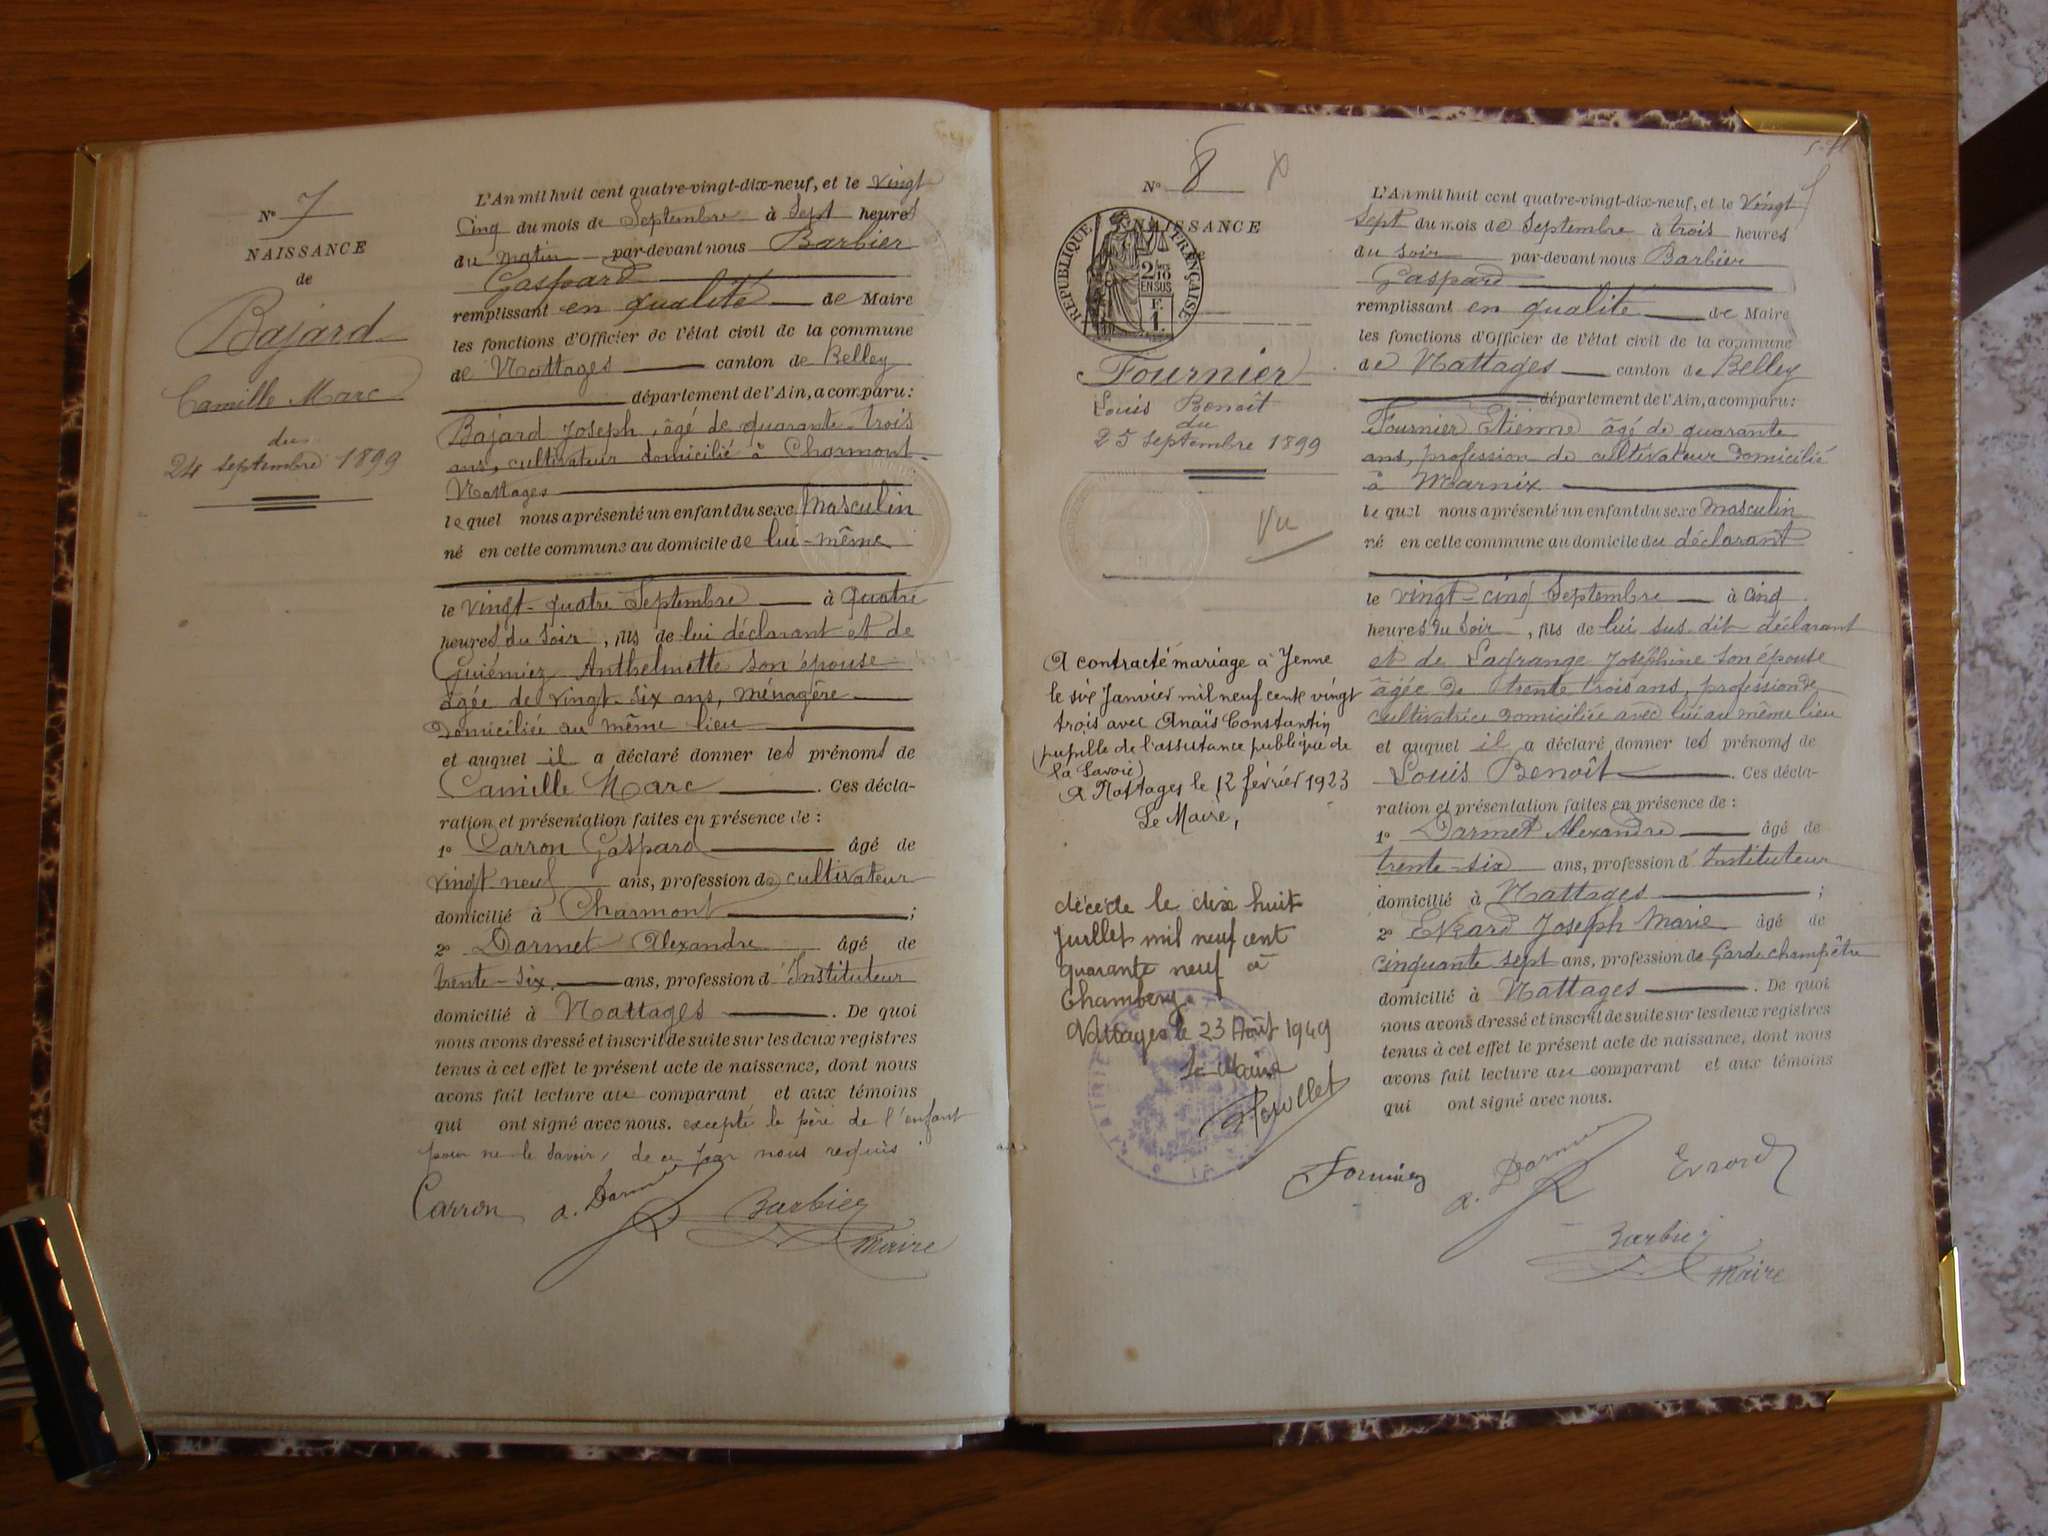 N° 7
NAISSANCE
de
Bajard
Camille Marc
du
24 septembre 1899
L'An mil huit cent quatre-vingt-dix-neuf, et le vingt
cinq du mois de Septembre à Sept heures
du matin par-devant nous Barbier
Gaspard
remplissant en qualité de Maire
les fonctions d'Officier de l'état civil de la commune
de Nattages canton de Belley
département de l'Ain, a comparu:
Bajard Joseph, âgé de quarante-trois
ans, cultivateur domicilié à Charmont-
Nattages
lequel nous a présenté un enfant du sexe Masculin
né en cette commune au domicile de lui-même
le vingt-quatre Septembre à quatre
heures du soir, fils de lui déclarant et de
Anthelmette son épouse
âgée de vingt-six ans, ménagère
domiciliée au même lieu
et auquel il a déclaré donner les prénoms de
Camille Marc. Ces décla-
ration et présentation faites en présence de :
1° Carron Gaspard âgé de
vingt neuf ans, profession de cultivateur
domicilié à Charmont ;
2° Darmet Alexandre âgé de
trente-six ans, profession d'Instituteur
domicilié à Nattages. De quoi
nous avons dressé et inscrit de suite sur les deux registres
tenus à cet effet le présent acte de naissance, dont nous
avons fait lecture au comparant et aux témoins
qui ont signé avec nous. excepté le père de l'enfant
pour ne le savoir, de ce par nous requis
Carron a. Darmet Barbier
Maire
N° 8
NAISSANCE
RÉPUBLIQUE FRANÇAISE
2/10
EN SUS
F.
1
Fournier
Louis Benoît
du
25 septembre 1899
Vu
A contracté mariage à Yenne
le six Janvier mil neuf cent vingt
trois avec Anaïs Constantin
(pupille de l'assistance publique de
la Savoie)
A Nattages le 12 février 1923
Le Maire,
décédé le dix huit
Juillet mil neuf cent
quarante neuf à
Chambéry.
Nattages le 23 Août 1949
Le Maire
L'An mil huit cent quatre-vingt-dix-neuf, et le vingt
sept du mois de Septembre à trois heures
du soir par-devant nous Barbier
Gaspard
remplissant en qualité de Maire
les fonctions d'Officier de l'état civil de la commune
de Nattages canton de Belley
département de l'Ain, a comparu:
Fournier Etienne âgé de quarante
ans, profession de cultivateur domicilié
à Marnix
lequel nous a présenté un enfant du sexe masculin
né en cette commune au domicile du déclarant
le vingt-cinq Septembre à cinq
heures du soir, fils de lui sus dit déclarant
et de Lagrange Joséphine son épouse
âgée de trente trois ans, profession de
cultivatrice domiciliée avec lui au même lieu
et auquel il a déclaré donner les prénoms de
Louis Benoît. Ces décla-
ration et présentation faites en présence de :
1° Darmet Alexandre âgé de
trente-six ans, profession d'Instituteur
domicilié à Nattages ;
2° Evrard Joseph Marie âgé de
cinquante sept ans, profession de Garde champêtre
domicilié à Nattages. De quoi
nous avons dressé et inscrit de suite sur les deux registres
tenus à cet effet le présent acte de naissance, dont nous
avons fait lecture au comparant et aux témoins
qui ont signé avec nous.
Fournier a. Darmet Evrard
Barbier
Maire